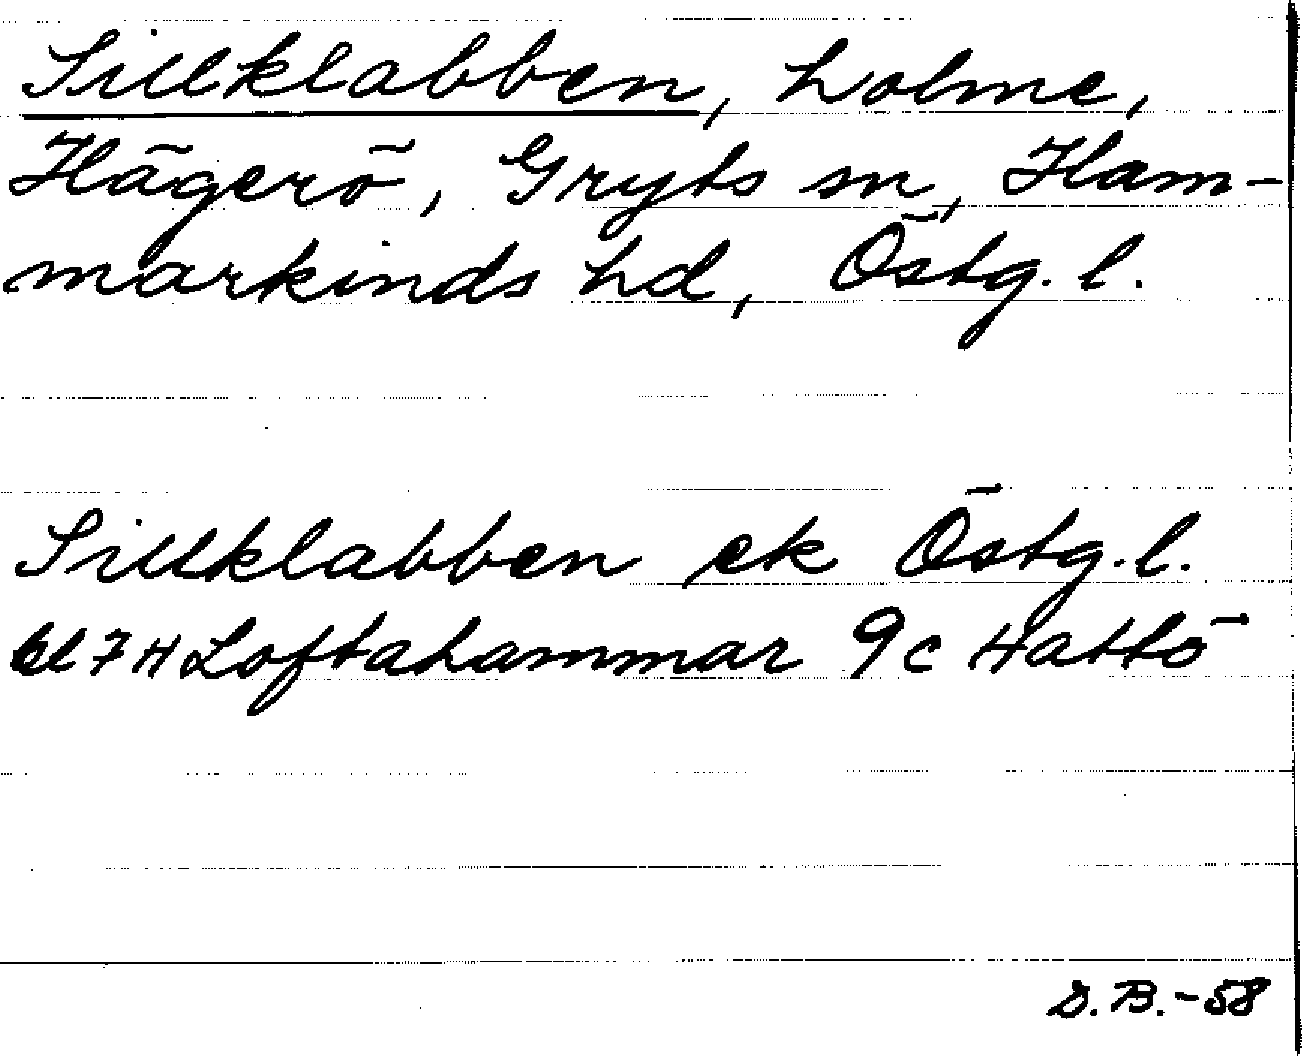 Sillklabben, holme,
Hägerö, Gryts sn, Ham-
markinds hd, Östg. l.
Sillklabben ek Östg. l.
bl 7 H Loftahammar 9c Hattö
D. B. -58